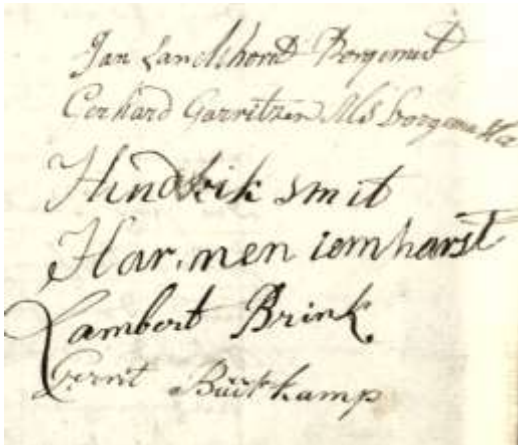 Jan Landshorst Borgemest
Gerhard Garritzen Als borgemester
Hindrik smit
Har.men iemharst
Lambert Brink.
Gerrit Büitkamp